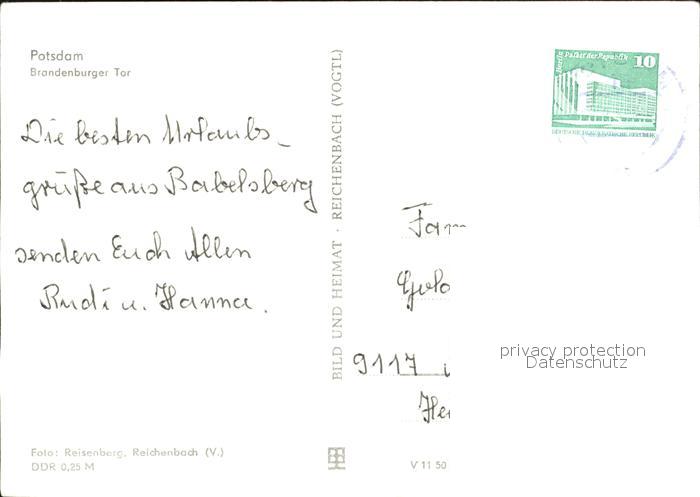 Potsdam
Brandenburger Tor
Die besten Urlaubs_
grüße aus Babelsberg
senden Euch Allen
Rudi u. Hanna.
Foto: Reisenberg, Reichenbach (V.)
DDR 0,25 M
BILD UND HEIMAT · REICHENBACH (VOGTL)
V 11 50
Berlin Palast der Republik
10
DEUTSCHE DEMOKRATISCHE REPUBLIK
Fam
9117
privacy protection
Datenschutz